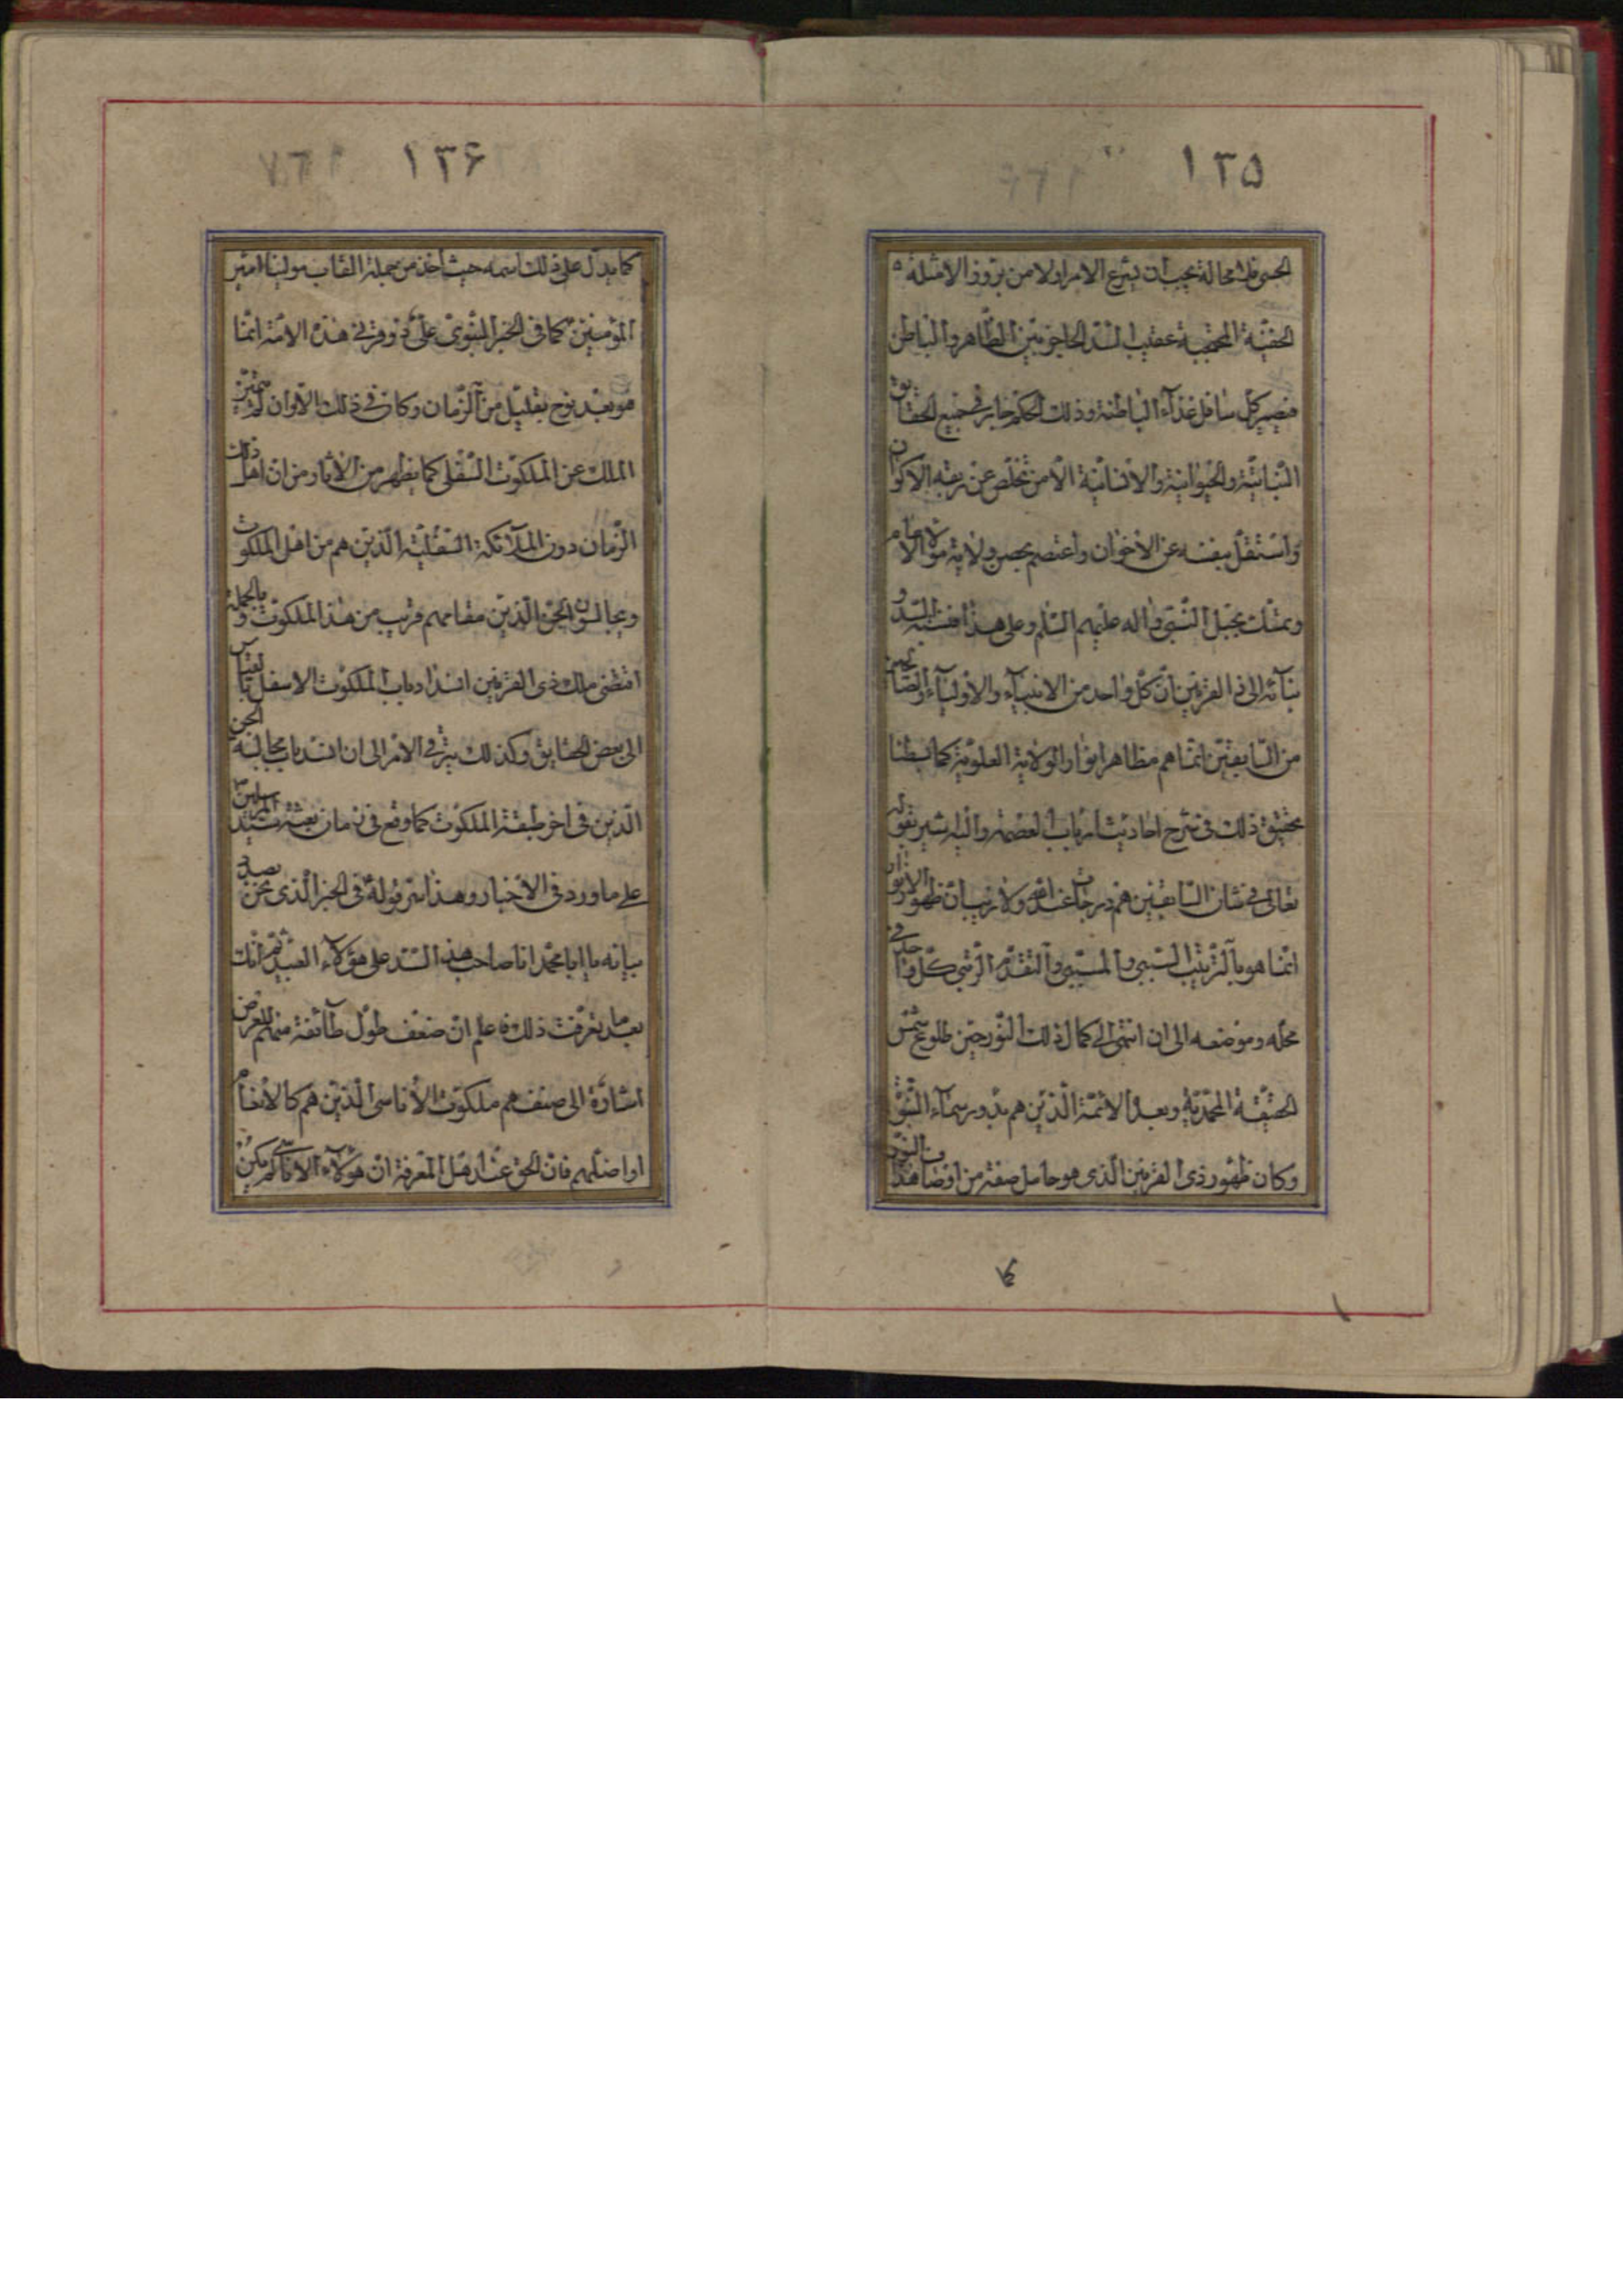 ١٣٥
الحسى فلا محالة يجب ان يشرع الامر اولا من بروز الامثلة
الخفيّة المحجبة عقيب السّد الحاجز بين الظّاهر والباطن
فيصير كل سافل غذآء الباطنه وذلك الحكم جار فى جميع الحقايق
النّباتيّة والحيوانية والانسانيّة الّا من تخلّص عن ربقة الاكوان
واستقلّ بنفسه عن الاخوان واعتصم بحصن ولاية مولاه الامام
وتمسّك بحبل النّبىّ واله عليهم السّلم وعلى هذا فنسبة السّد و
بنآئه الى ذى القرنين انّ كلّ واحد من الانبيآء والاوليآء والصّالحين
من السّابقين انّما هم مظاهر انوار الولاية العلويّة كما بسطنا
تحقيق ذلك فى شرح احاديث ارباب العصمة واليه يشير بقوله
تعالى فى شان السّابقين هم درجات عند الله ولا ريب ان ظهور الانوار
انّما هو بالتّرتيب السّببى والمسبّبى والتقدّم الرّتبى كلّ واحد فى
محلّه وموضعه الى ان انتهى الى كمال ذلك النّور حين طلوع شمس
الحقيقة المحمّديّة وبعده الائمّة الّذين هم بدور سمآء النّبوّة
وكان ظهور ذى القرنين الّذى هو حامل صفة من اوصاف هذا النّور
١٣۶
كما يدلّ على ذلك اسمه حيث اخذ من جملة القاب مولينا امير
المؤمنين كما فى الخبر النّبوىّ علىّ ذو قرنى هذه الامّة انّما
هو بعد نوح بقليل من الزّمان وكان فى ذلك الاوان لم يتميّز
الملك عن الملكوت السّفلى كما يظهر من الاثار ومن انّ اهل ذلك
الزّمان دون الملآئكة السّفليّة الّذين هم من اهل الملكوت
ويجالسون الجنّ الّذين مقامهم قريب من هذا الملكوت و بالجملة
اقتضى ملك ذى القرنين انسداد باب الملكوت الاسفل بالقياس
الى بعض الحقايق وكذلك يترقى الامر الى ان انسد باب مجالسة الجن
الّذين فى اخر طبقة الملكوت كما وقع فى زمان بعثة سيّد المرسلين
على ما ورد فى الاخبار وهذا سرّ قوله فى الخبر الّذى نحن بصدد
بيانه يا ابا محمّد انا صاحب هذا السّد على هؤلآء العبيد ثمّ انّك
بعد ما تعرّفت ذلك فاعلم انّ ضعف طول طآئفة منهم للعرض
اشارة الى صنف هم ملكوت الاناسى الّذين هم كالانعام
او اضلّهم فانّ الحق عند اهل المعرفة انّ هؤلآء الاناسّى لم يكن